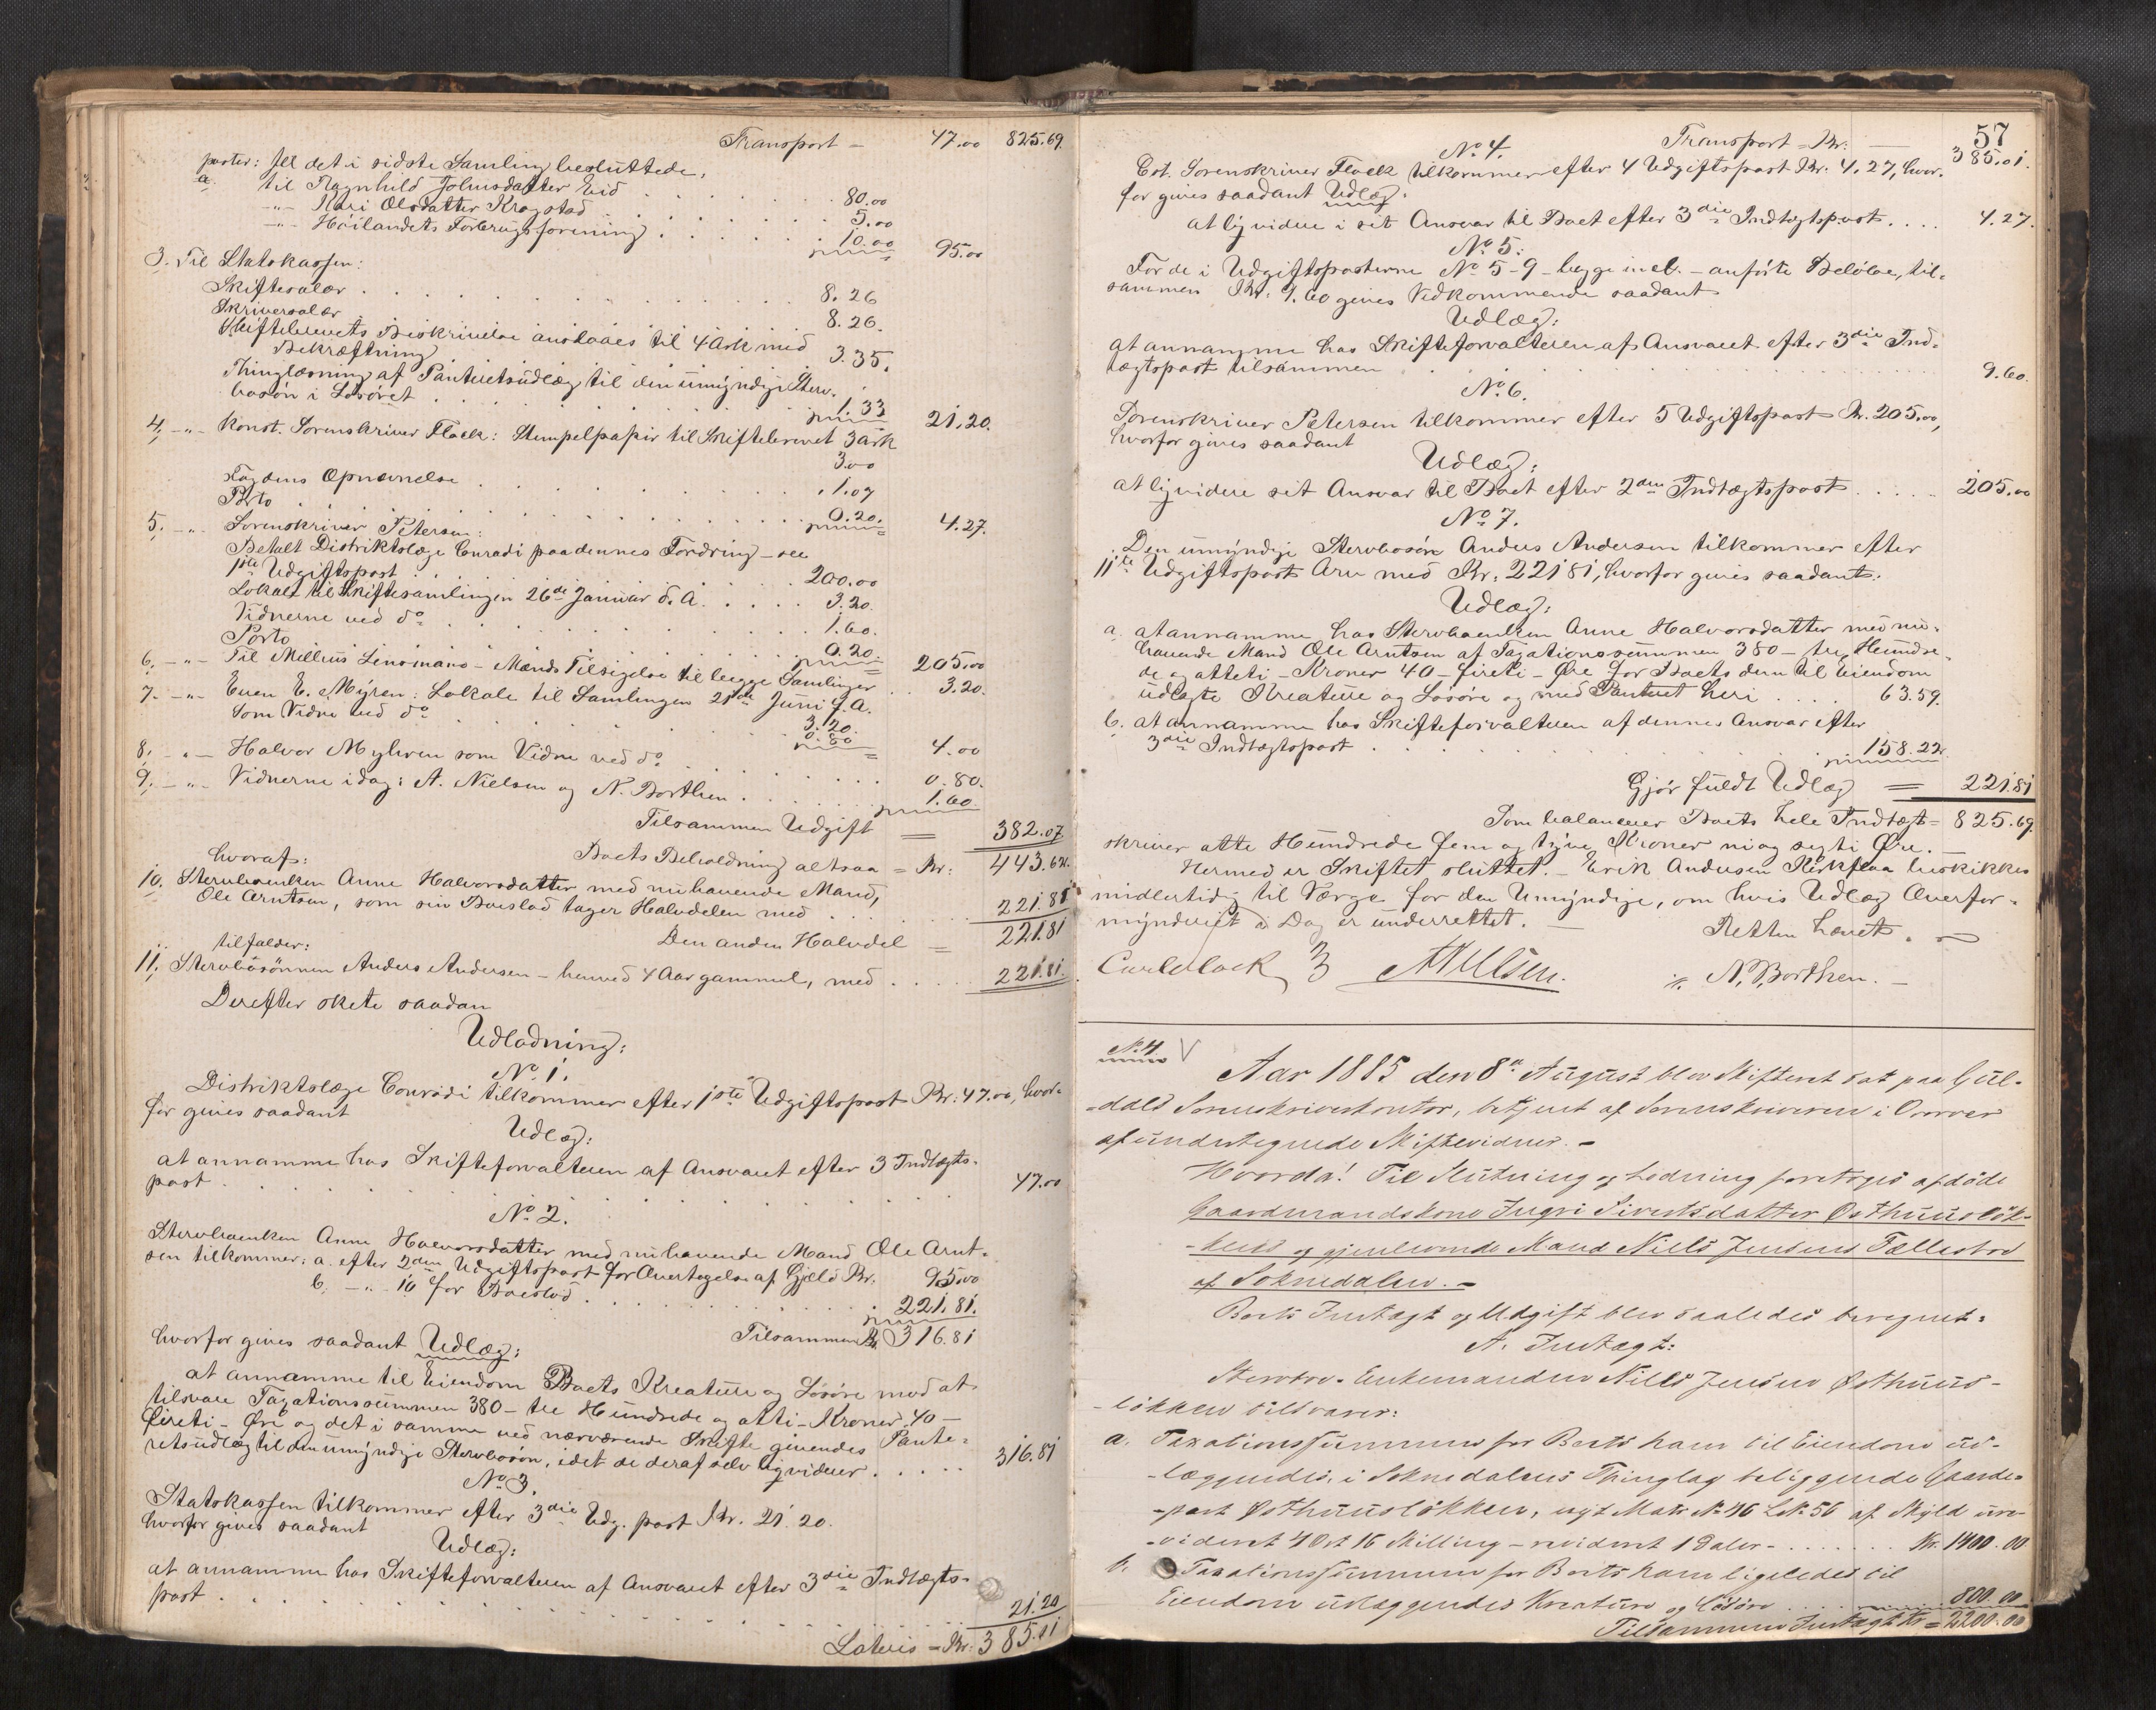 Transport - 47.00 825.69.
poster: for det i sidste Samling besluttede,
a. til Ragnhild Johnsdatter Eid . . . 80.00
-"- Kari Olsdatter Kragstad . . . 5.00
-"- Höilandets Forbrugsforening . . . 10.00 95.00
3. Til Statskassen:
Skiftesalær . . . 8.26
Skriversalær . . . 8.26.
Skiftebrevets Beskrivelse anslaaes til 4 Ark med
Bekræftning 3.35.
Thinglæsning af Panteretsudlæg til den umyndige Sterv-
bosön i Lösöret . . . 1.33 21.20.
4, -"- Konst. Sorenskriver Flock: Stempelpapir til Skiftebrevet 3 ark
3.00
Fogdens Opnævnelse . . . 1.07
Porto . . . 0.20. 4.27.
5. -"- Sorenskriver Petersen:
Betalt Distriktslæge Conradi paa dennes Fordring - see
1ste Udgiftspost . . . 200.00
Lokale til Skiftesamlingen 26de Januar d. A. . . . 3.20.
Vidnerne ved do . . . 1.60.
Porto . . . 0.20. 205.00
6, -"- Til Mellius Lensmans-Mænds Tilsigelse til begge Samlinger . 3.20.
7. -"- Even E. Myren: Lokale til Samlingen 21de Juni f. A. 3.20.
Som Vidne ved do . . . 0.80 4.00
8, -"- Halvor Myhren som Vidne ved do . . . 0.80.
9, -"- Vidnerne idag: A. Nielsen og N. Borthen . . . 1.60.
Tilsammen Udgift = 382.07
Boets Beholdning altsaa = Kr: 443.62.
hvoraf:
10. Stervboenken Anne Halvorsdatter med nuhavende Mand,
Ole Arntsen, som sin Boeslod tager Halvdelen med . . . 221.81
Den anden Halvdel = 221.81
tilfalder:
11, Stervbosönnen Anders Andersen - henved 4 Aar gammel, med . . . 221.81.
Derefter skete saadan
Udlodning:
No 1.
Distriktslæge Conradi tilkommer efter 1ste Udgiftspost Kr: 47.00, hvor-
for gives saadant
Udlæg:
at annamme hos Skifteforvalteren af Ansvaret efter 3 Indtægts-
post . . . 47.00
No 2.
Stervboenken Anne Halvorsdatter med nuhavende Mand Ole Arnt-
sen tilkommer: a. efter 2den Udgiftspost for Overtagelse af Gjæld Kr. 95.00
b. -"- 10 for Boeslod . . . 221.81.
Tilsammen Kr. 316.81
hvorfor gives saadant Udlæg:
at annamme til Eiendom Boets Kreature og Lösöre mod at
tilsvare Taxationssummen 380 - tre Hundrede og otti - Kroner 40 -
fireti - Øre og det i samme ved nærværende Skifte givendes Pante-
retsudlæg til den umyndige Stervbosön, idet de deraf selv liqviderer . . . 316.81
No 3.
Statskassen tilkommer efter 3die Udg. post Kr. 21.20.
hvorfor gives saadant
Udlæg:
at annamme hos Skifteforvalteren af Ansvaret efter 3die Indtægts-
post . . . 21.20
Latus = Kr: 385.01
57
Transport = Kr. - 385.01.
No 4.
Cst. Sorenskriver Flock tilkommer efter 4 Udgiftspost Kr. 4.27, hvor-
for gives saadant Udlæg:
at liqvidere i sit Ansvar til Boet efter 3die Indtægtspost . . . 4.27.
No 5:
For de i Udgiftsposterne No 5-9 - begge incl. - anförte Belöbe, til-
sammen Kr. 9.60 gives Vedkommende saadant
Udlæg:
at annamme hos Skifteforvalteren af Ansvaret efter 3die Ind-
tægtspost tilsammen . . . 9.60.
No 6.
Sorenskriver Petersen tilkommer efter 5 Udgiftspost Kr. 205.00,
hvorfor gives saadant
Udlæg:
at liqvidere sit Ansvar til Boet efter 2den Indtægtspost . . . 205.00
No 7.
Den umyndige Stervbosön Anders Andersen tilkommer efter
11te Udgiftspost Arv med Kr: 221.81, hvorfor gives saadant
Udlæg:
a. at annamme hos Stervboenken Anne Halvorsdatter med nu-
havende Mand Ole Arntsen af Taxationssummen 380 - tre Hundre-
de og otteti - Kroner 40 - fireti - Øre for Boets dem til Eiendom
udlagte Kreature og Lösöre og med Panteret heri . . . 63.59.
b. at annamme hos Skifteforvalteren af dennes Ansvar efter
3die Indtægtspost . . . 158.22.
Gjör fuldt Udlæg = 221.81
Som balancerer Boets hele Indtægt = 825.69.
skriver otte Hundrede fem og tyve Kroner ni og sexti Øre. -
Hermed er Skiftet sluttet. - Erik Andersen Kirkflaa beskikkes
midlertidig til Værge for den Umyndige, om hvis Udlæg Overfor-
mynderiet i Dag er underrettet. - Retten hævet.
Carl Flock A Nilsen. N. Borthen. -
No 4 V
Aar 1885 den 8de August blev Skifteret sat paa Gul-
-dals Sorenskriverkontor, betjent af Sorenskriveren i Overvær
af undertegnede Skiftevidner. -
Hvorda! Til Slutning og Lodning foretoges afdöde
Gaardmandskone Ingri Sivertsdatter Østhuuslök-
-kens og gjenlevende Mand Niels Jensens Fællesbo
af Soknedalen. -
Boets Indtægt og Udgift blev saaledes beregnet:
A. Indtægt:
Stervbo-Enkemanden Niels Jensen Østhuus-
-lökken tilsvarer:
a. Taxationssummen for Boets ham til Eiendom ud-
-læggendes, i Soknedalens Thinglag beliggende Gaarde-
-part Østhuuslökken, nyt Matr No 46 L.No 56 af Skyld ure-
-videret 4 Ort 16 Skilling - revideret 1 Daler - . . . Kr. 1400.00
b. Taxationssummen for Boets ham ligeledes til
Eiendom udlæggendes Kreature og Lösöre . . . 800.00
Tilsammen Indtægt Kr = 2200.00